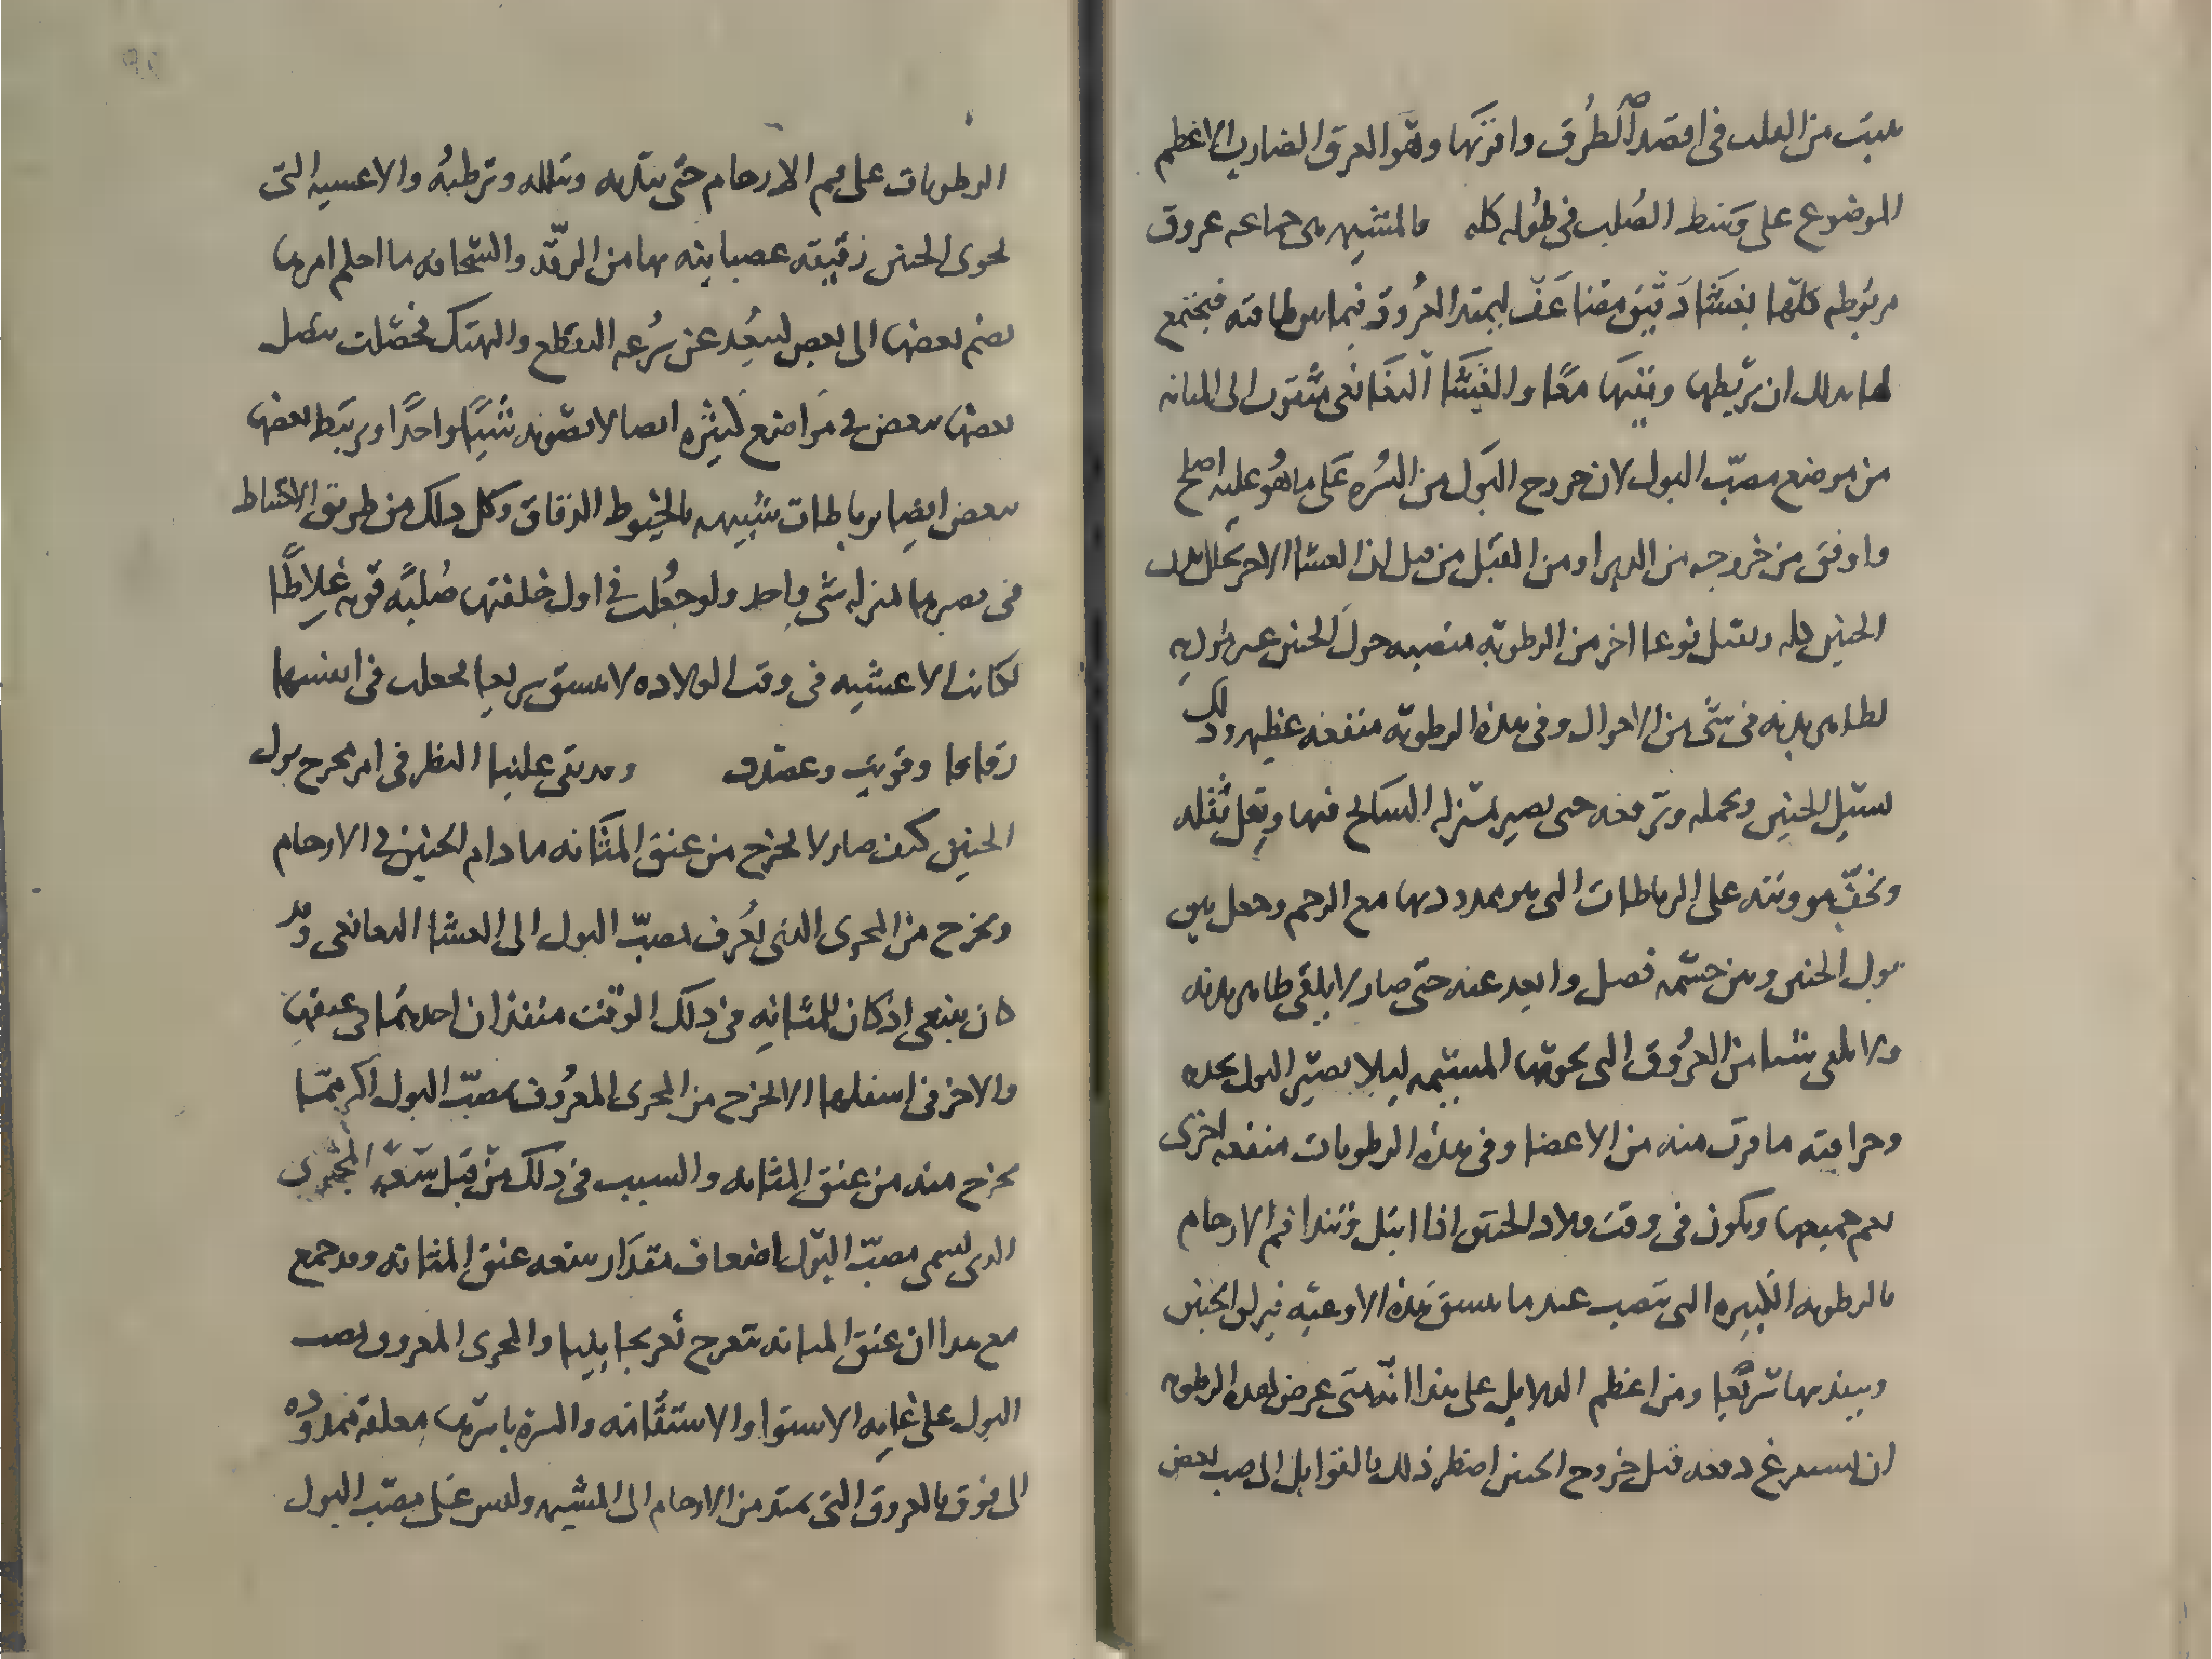 من القلب في اقصد الطرق واقربها وهو العرق الضارب الاعظم
الموضوع على وسط الصلب في طوله كله فالمشيمه هي جماعه عروق
مربوطه كلها بغشا دقيق مضاعف ليمتد العروق فيما بين طاقته فيجتمع
لها بذلك ان تربطها وتقيها معا والغشا اللفانفي مثقوب الى المثانه
من موضع مصب البول لان خروج البول من السره على ما هو عليه اصلح
واوفق من خروجه من الدبر او من القبل من قبل ان الغشا الاخر يجلل بدن
الجنين كله ويقبل نوعا اخر من الرطوبه منصبه حول الجنين غير مؤذيه
لظاهر بدنه في شي من الاحوال وفي هذه الرطوبه منفعه عظيمه وذلك
لتشيل الجنين وتحمله وترفعه حتى يصير بمنزله السابح فيها ويقل ثقله
ويخف هو وثقله على الرباطات التي هو ممدود بها مع الرحم وجعل بين
بول الجنين وبين جسمه فصل وابعد عنه حتى صار لا يلقى ظاهر بدنه
ولا يلقى شيا من العروق التي تحويها المشيمه ليلا يضير البول بحده
وحرافته ما قرب منه من الاعضا وفي هذه الرطوبات منفعه اخرى
تعم جميعها وتكون في وقت ولاد الجنين اذا ابتل وتندا فم الارحام
بالرطوبه الكثيره التي تنصب عند ما تنشق هذه الاوعيه فيزلق الجنين
وينفذ بها سريعا ومن اعظم الدلايل على هذا انه متى عرض لهذه الرطوبه
ان تستفرغ دفعه قبل خروج الجنين اضطر ذلك القوابل الى صب بعض
الرطوبات على فم الارحام حتى تنديه وتبلله وترطبه والاغشيه التي
تحوي الجنين رقيقه عصبانيه بها من الرقه والسخافه ما احلم امرها
بضم بعضها الى بعض لتبعد عن سرعه التقطع والهتك فحصلت تتصل
بعضها ببعض في مواضع كثيره اتصالا تصير به شيا واحدا ويرتبط بعضها
ببعض ايضا برباطات شبيهه بالخيوط الدقاق وكل ذلك من طريق الاحتياط
في مصيرها بمنزله شي واحد ولو جعلت في اول خلقتها صلبه قويه غلاظا
لكانت الاغشيه في وقت الولاده لا تنشق سريعا فجعلت في انفسها
رقاقا وقويت وعضدت وقد بقي علينا النظر في امر مخرج بول
الجنين كيف صار لا يخرج من عنق المثانه ما دام الجنين في الارحام
ويخرج من المجرى الذي يعرف بمصب البول الى الغشا اللفانفي وقد
كان ينبغي اذ كان للمثانه في ذلك الوقت منفذان احدهما في عنقها
والاخر في اسفلها الا يخرج من المجرى المعروف بمصب البول اكثر مما
يخرج منه من عنق المثانه والسبب في ذلك من قبل سعه المجرى
الذي يسمى مصب البول اضعاف مقدار سعه عنق المثانه وقد جمع
مع هذا ان عنق المثانه يتعرج تعريجا بليا والمجرى المعروف بمصب
البول على غايه الاستوا والاستقامه والسره باسرها معلقه ممدوده
الى فوق بالعروق التي تمتد من الارحام الى المشيمه وليس على مصب البول